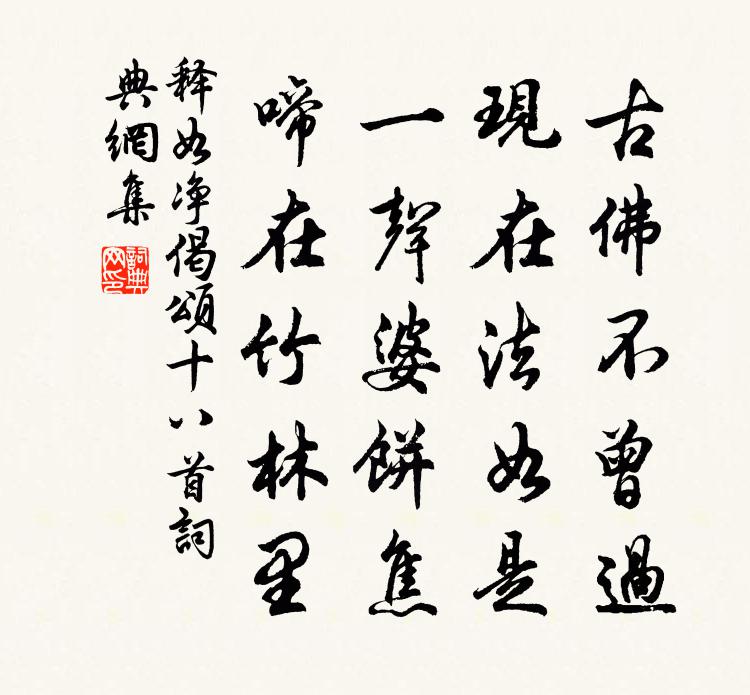 古佛不曾過
現在法如是
一聲婆餅焦
啼在竹林里
释如净偈頌十八首詞
典網集
詞典
网印